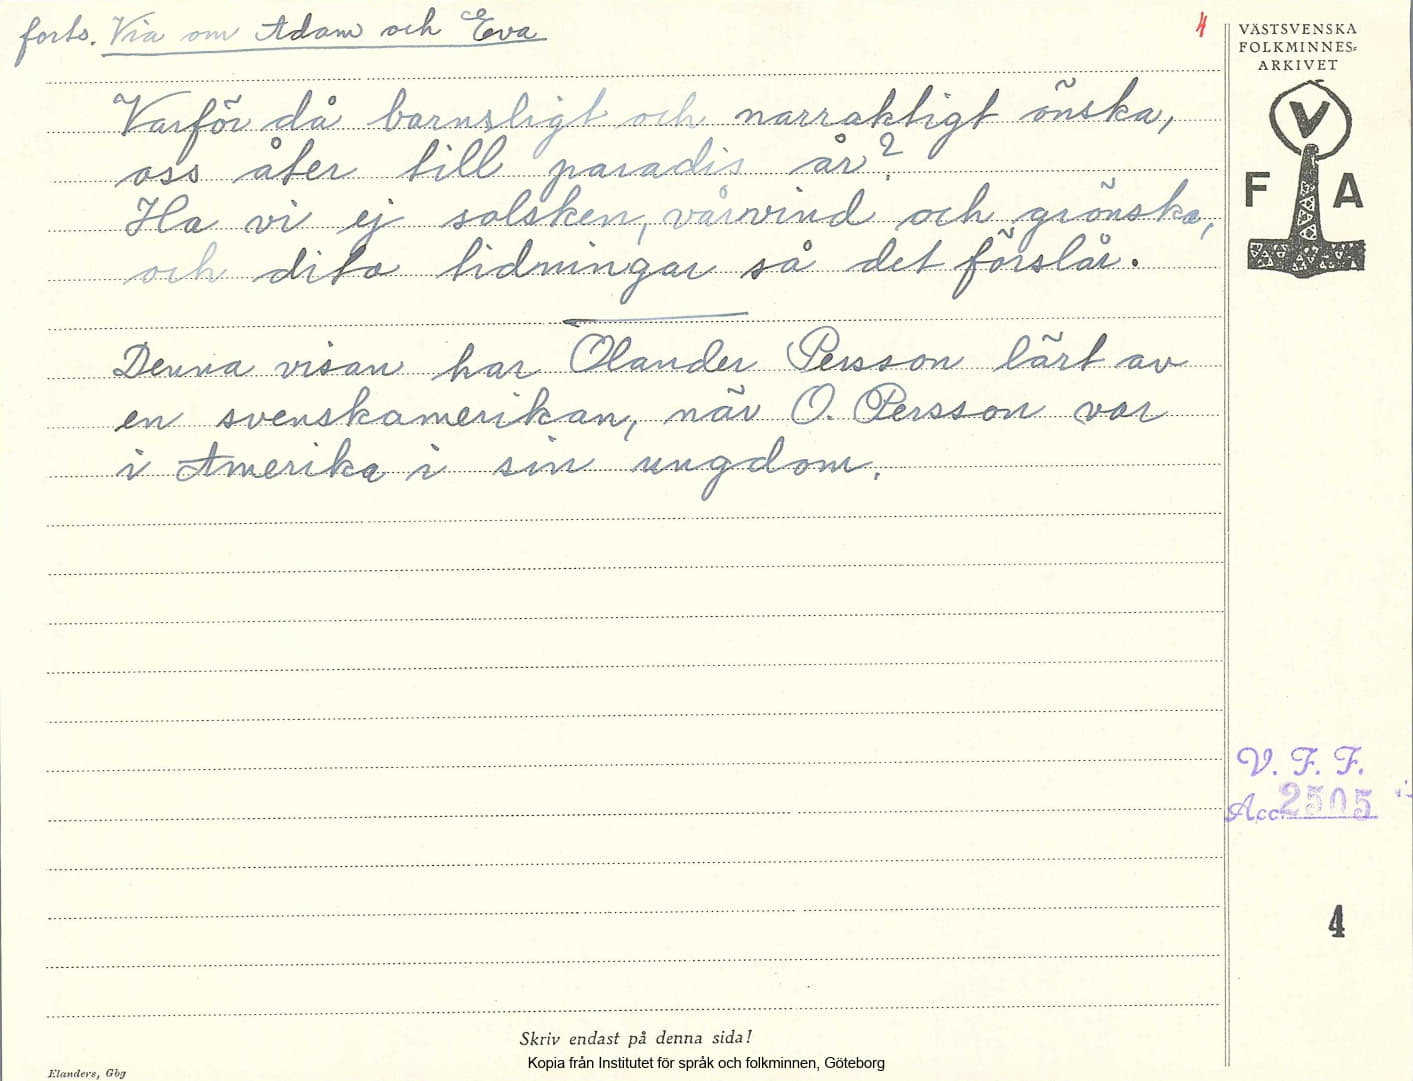 forts. Via om Adam och Eva
4
VÄSTSVENSKA
FOLKMINNES-
ARKIVET
V
F A
Varför då barnsligt och narraktigt önska,
oss åter till paradis år?
Ha vi ej solsken, vårvind och grönska,
och dito tidningar så det förslår.
Denna visan har Olander Persson lärt av
en svenskamerikan, när O. Persson var
i Amerika i sin ungdom.
V. F. F.
Acc. 2505
4
Skriv endast på denna sida!
Kopia från Institutet för språk och folkminnen, Göteborg
Elanders, Gbg